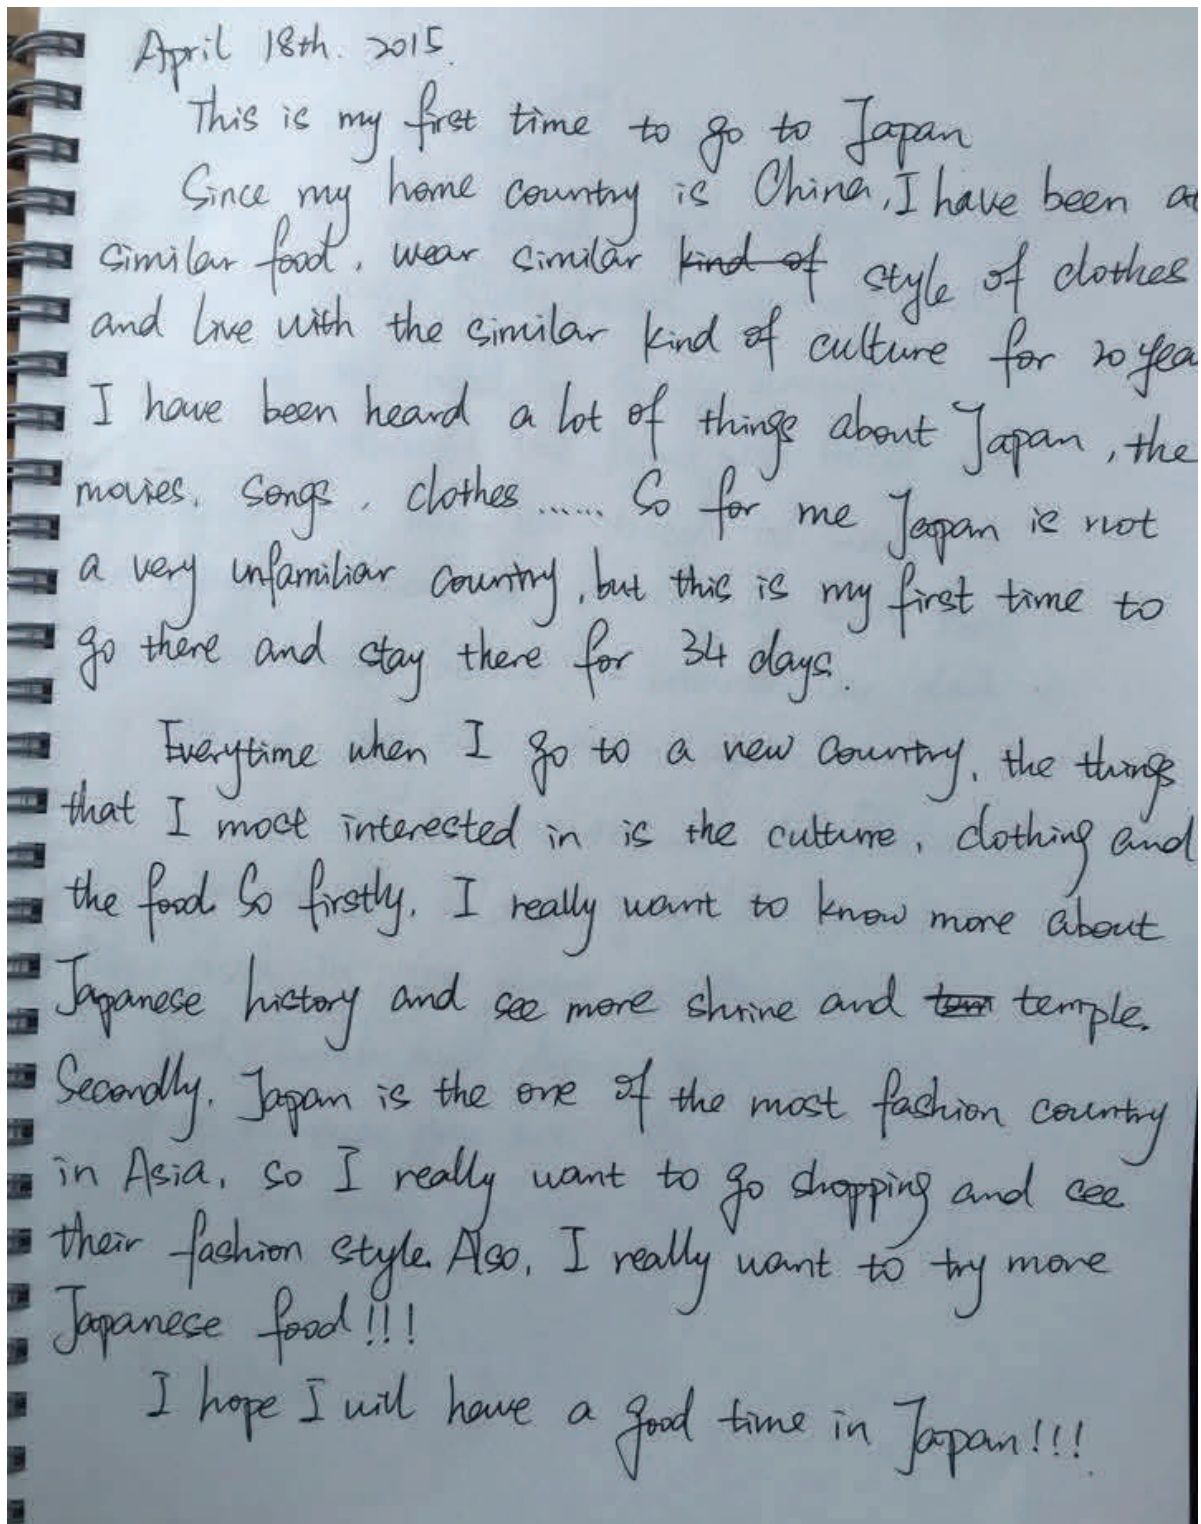 April 18th. 2015.
This is my first time to go to Japan
Since my home country is China, I have been at
similar food, wear similar kind of style of clothes
and live with the similar kind of culture for 20 yea
I have been heard a lot of things about Japan, the
movies, songs, clothes ...... So for me Japan is not
a very unfamiliar country, but this is my first time to
go there and stay there for 34 days.
Everytime when I go to a new country, the things
that I most interested in is the culture, clothing and
the food. So firstly, I really want to know more about
Japanese history and see more shrine and tem temple.
Secondly, Japan is the one of the most fashion country
in Asia, so I really want to go shopping and see
their fashion style. Also, I really want to try more
Japanese food!!!
I hope I will have a good time in Japan!!!